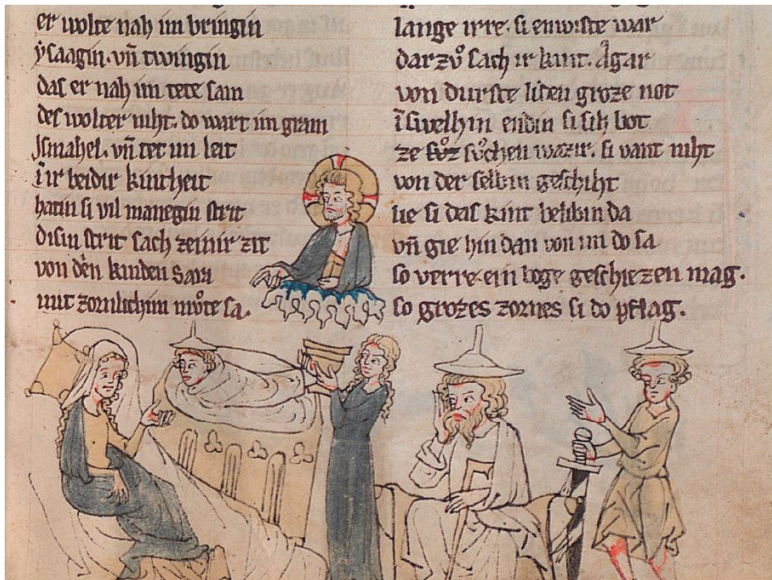 er wolte nah im bringin
ysaagin. vn̄ twingin
das er nah im tete sam
des wolter niht. do wart im gram
Jsmahel. vn̄ tet im leit
ī ir beidir kintheit
hatin si vil manegin strit
disin strit sach zeinir zit
von den kinden Sara
mit zornlichim mǒte sa.
lange irre. si enwiste war
darzv̊ sach ir kint. Agar
von durste liden groze not
ī swelhin endin si sih bot
ze sv̊chen wazir. si vant niht
von der selbin geschiht
lie si das kint belibin da
vn̄ gie hin dan von im do sa
so verre ein boge geschiezen mag.
so grozes zornes si do pflag.